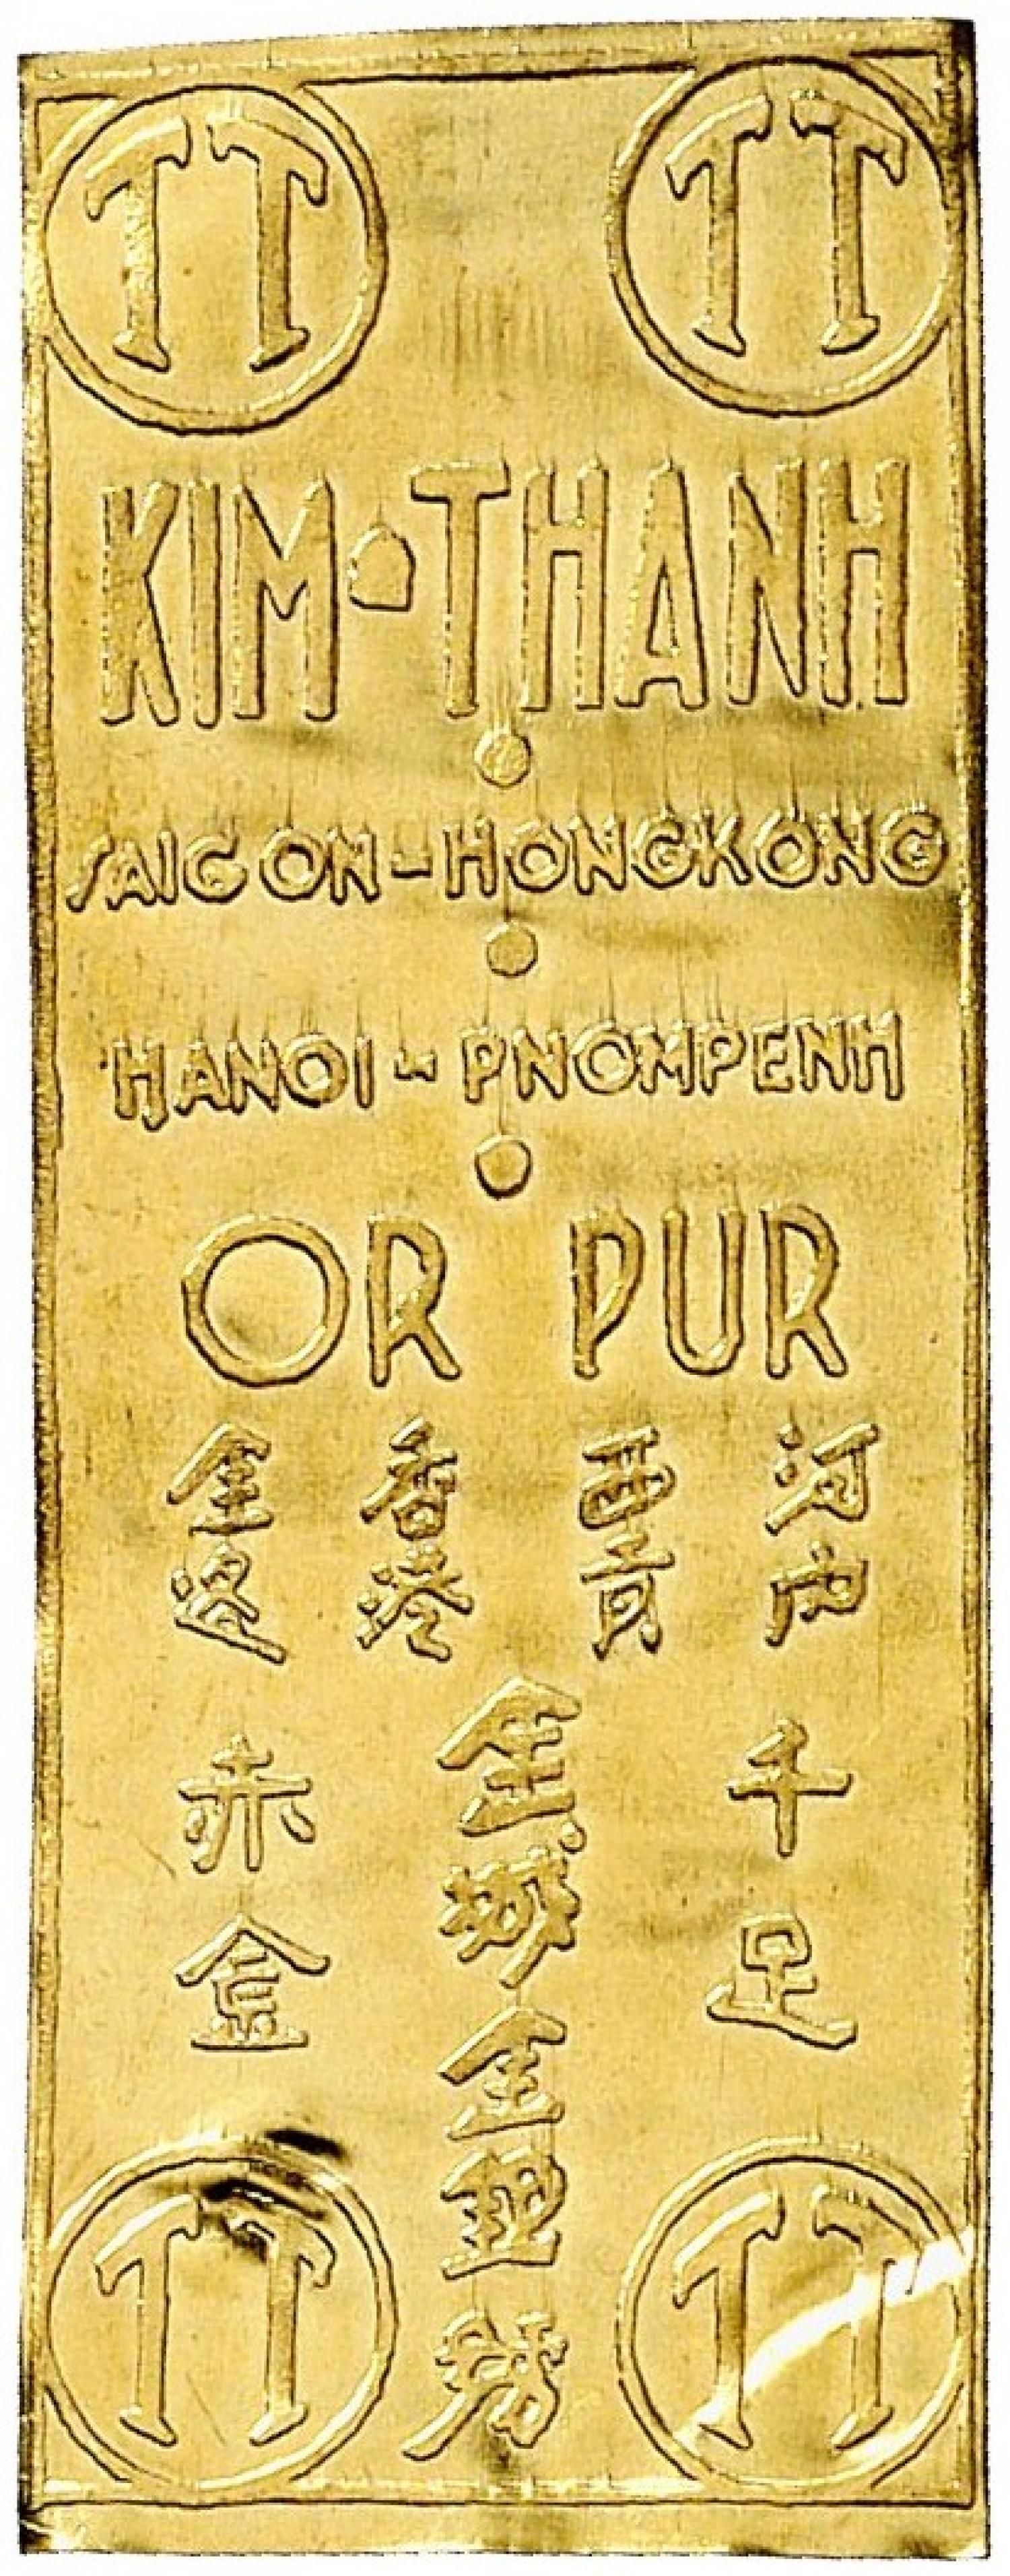 TT TT
KIM·THANH
SAIGON-HONGKONG
HANOI-PNOMPENH
OR PUR
河內
西貢
香港
金邊
千足
金城金
赤金
TT TT